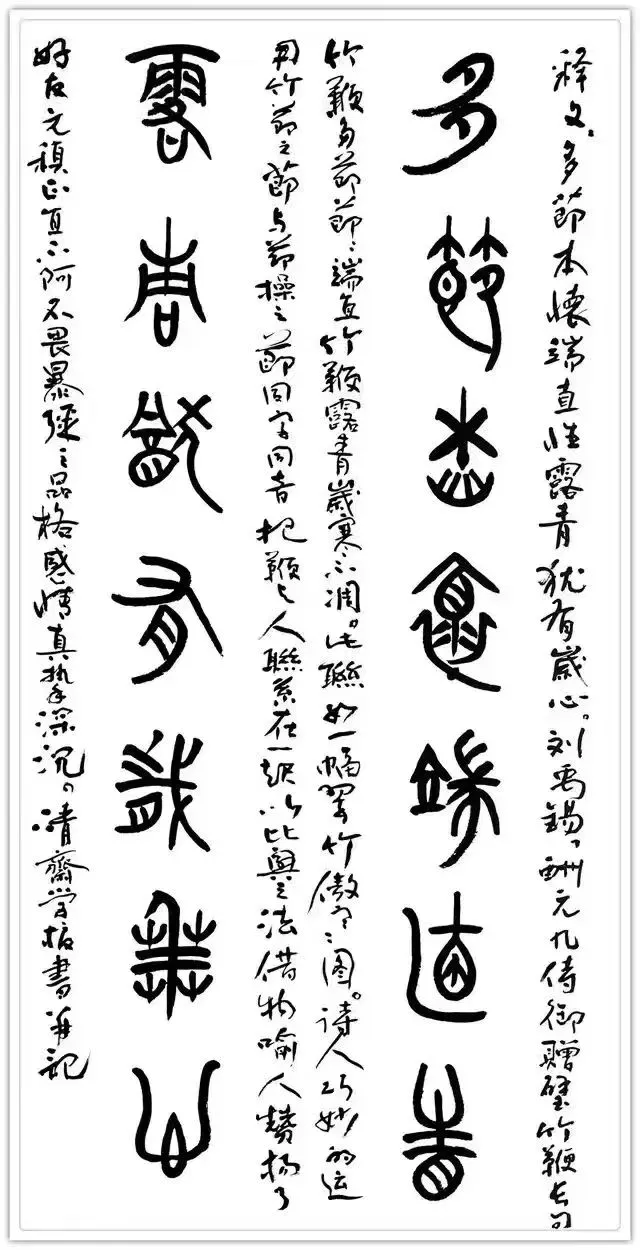 释文：多節本懷端直性露青犹有歲心。刘禹锡、酬元九侍御赠璧竹鞭長句
多節本懷端直性
竹鞭多節節〻端直竹鞭露青歲寒不凋。此聯如一幅翠竹傲寒之图。诗人巧妙的运
用竹節之節与節操之節同字同音把鞭与人聯系在一起以比興之法借物喻人赞扬了
露青猶有歲寒心
好友元稹正直不阿不畏暴强之品格感情真挚深沉。清齋学柏書并記